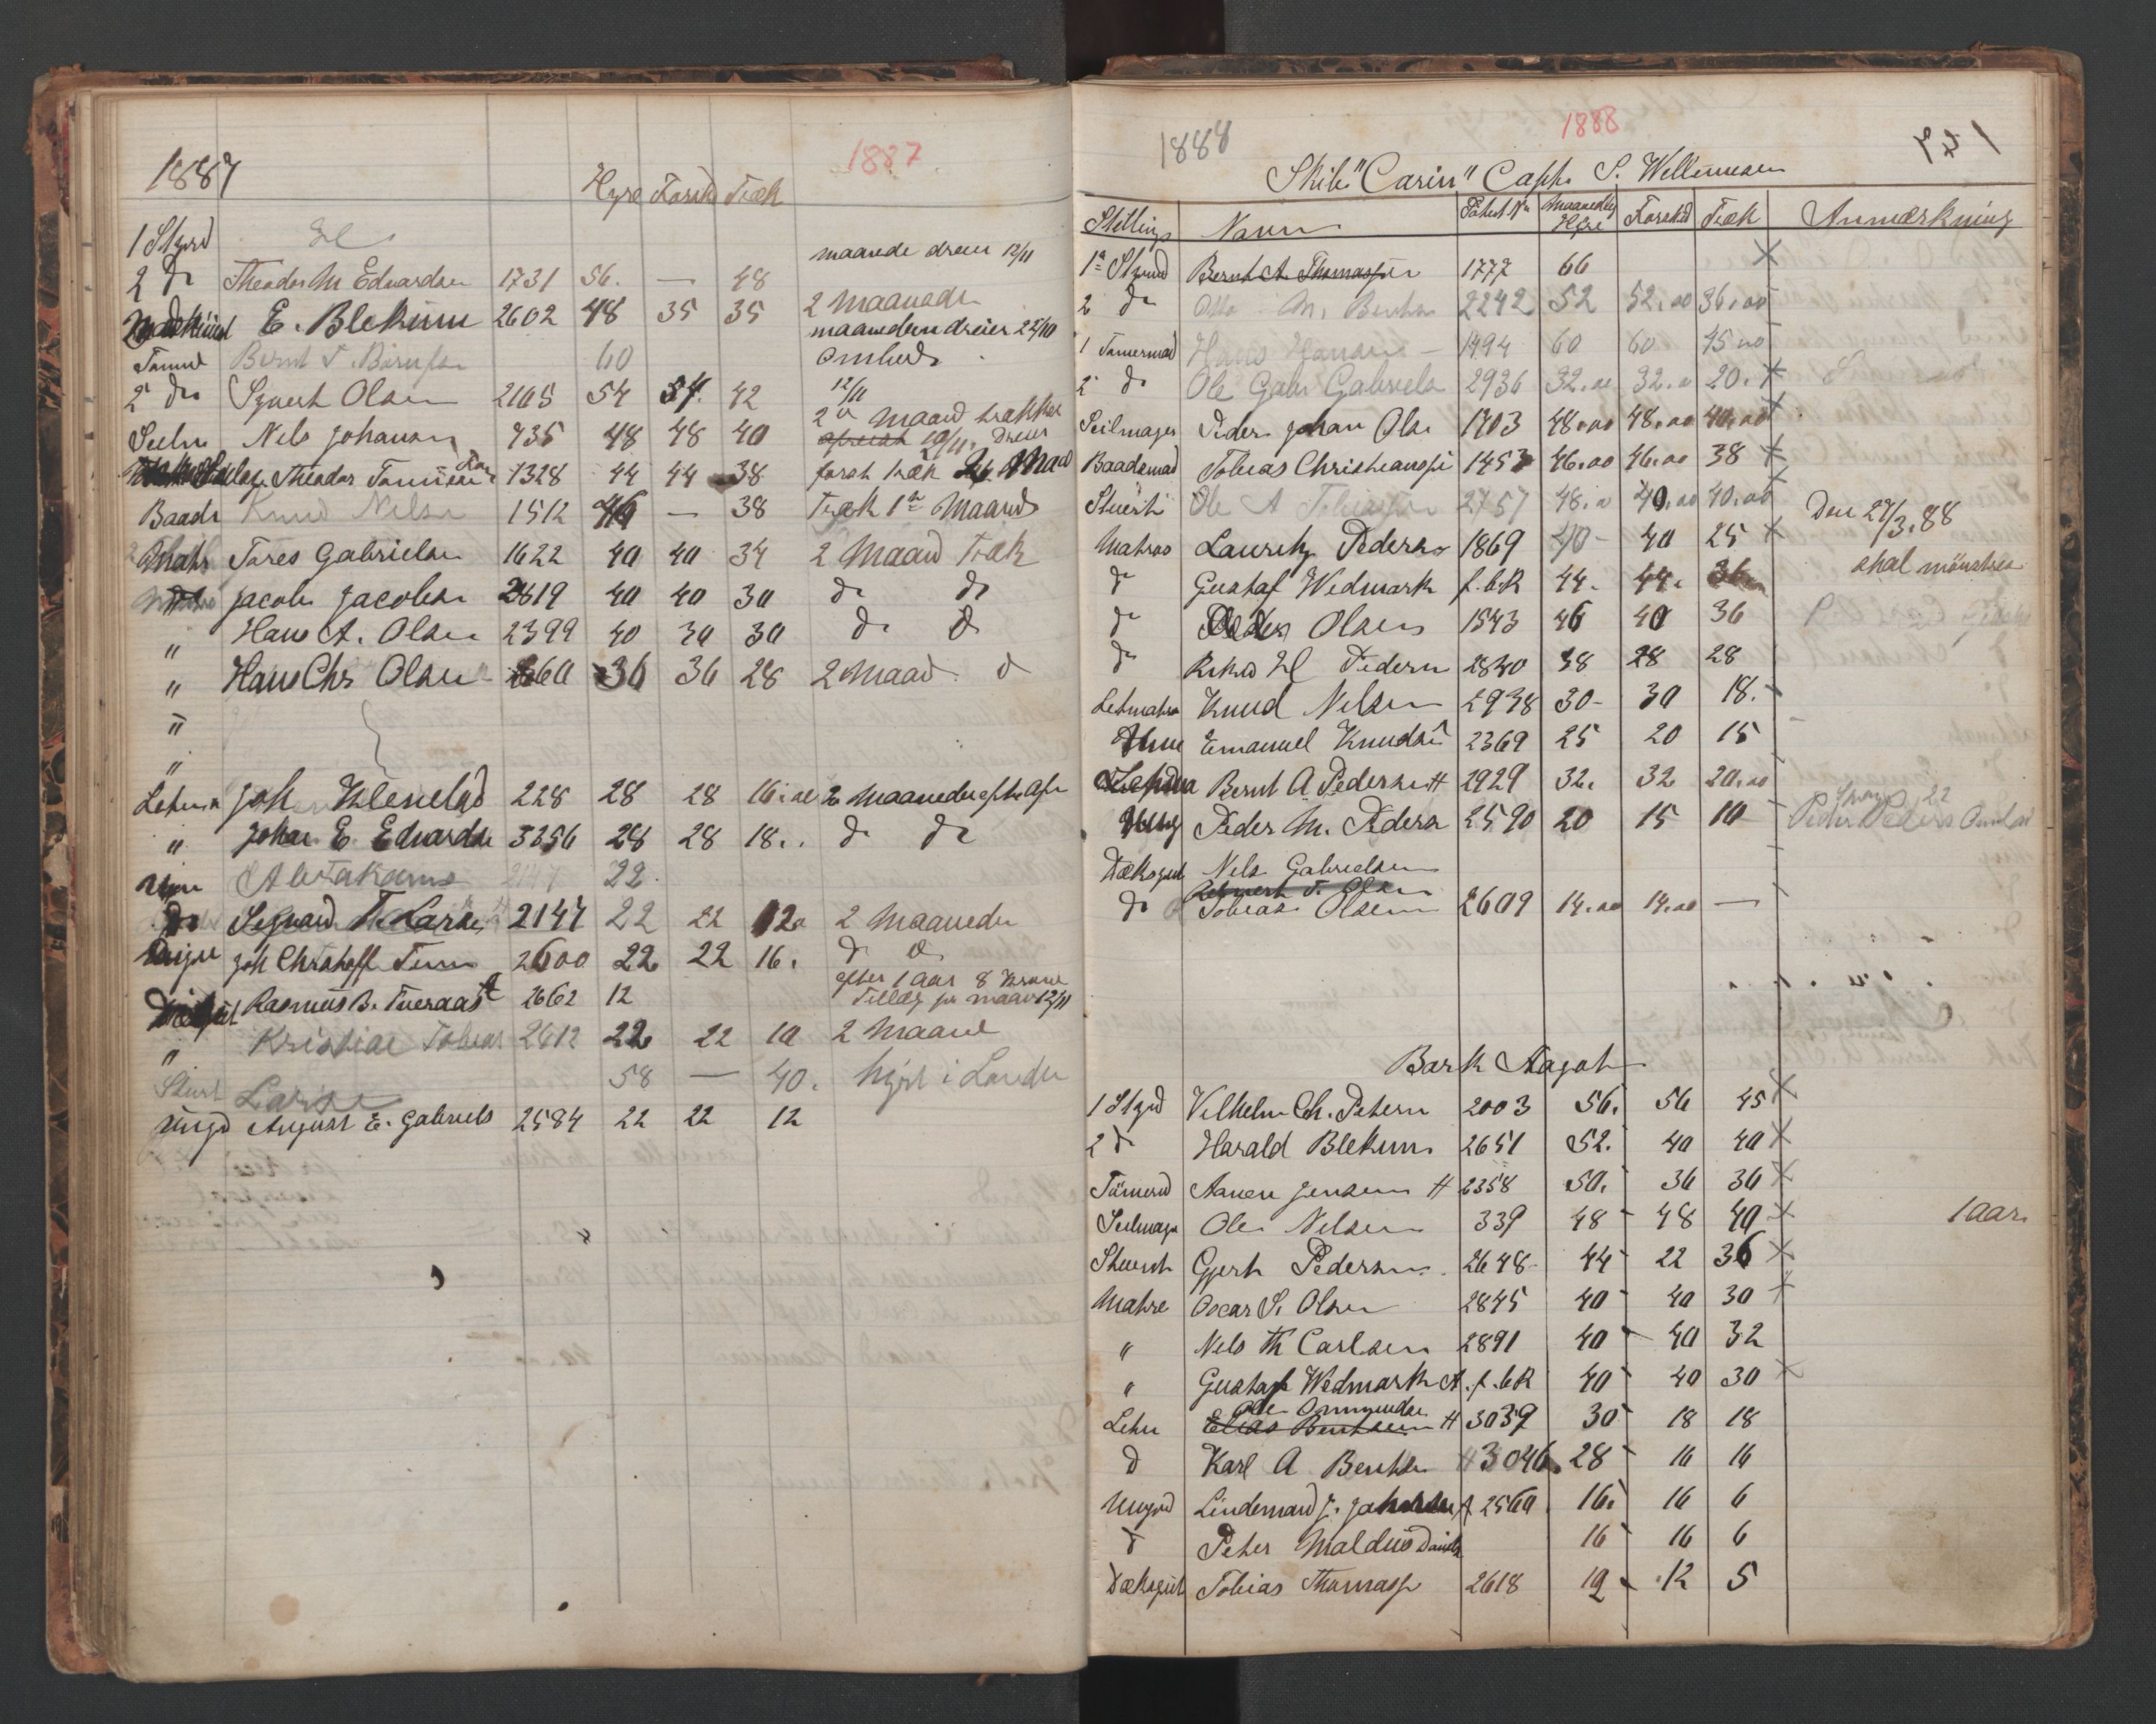 1887
1887
Hyre Forsk Træk
1 Styrd
maanede dreier 12/11
2 do Theodor M Edvardsen 1731 56. — 48
E. Blekum 2602 48 35 35 2 Maaneder
maanedern dreier 25/10
Tømmd Bernt T. 60 ombeds
2 do Syvert Olsen 2165 54 54. 42 12/11
2 Maand trækker
Seelm Nels Johansen 735 48 48 40 19/11 dreier
Theodor 1328 44 44 38 forsk træk Maad
Baads Knud Nelsen 1512 46 — 38 Træk 1ste Maand
Matr Tores Gabrielsen 1622 40 40 34 2 Maand Træk
Jacob Jacobsen 2619 40 40 30 do do
" Hans A. Olsen 2399 40 30 30 do do
" Hans Chr Olsen 36 36 28 2 Maad. do
"
"
Letm Joh Klenelad 228 28 28 16.00 2 Maaneder efter
" Johan E. Edvards 3356 28 28 18.. do do
Ungm 2147 22
do Seguard T. Larsen 2147 22 22 12 2 Maaneder
Joh Christoff 2600 22 22 16. do do
efter 1 aar 8 Krone
Rasmus B. Tueraas 2662 12 Tillæg pr maaned 12/11
" Kristian Tobias 2612 22 22 10 2 Maaned
Stuert Larsen 58 — 40. hyrt i London
Ungd August E. Gabriels 2584 22 22 12
1888
1888
Skib "Carin" Capt. S. Wellumsen
Stilling Navn Patent No Maanedlig Hyre Forskud Træk Anmærkning
1ste Styrmd Bernt A. Thomassen 1777 66 X
2 do Otto M. Bentsen 2242 52 52.00 36.00
1 Tømermd Hans Hansen — 1494 60 60 45 00
2 do Ole Gabr Gabriels 2936 32.00 32.00 20. X
Seilmager Peder Johan Olse 1703 48.00 48.00 40.00 X
Baadsmd Tobias Christianssen 1453 46.00 46.00 38 X
Stuert Ole A Tobiassen 2757 48.00 40.00 40.00
Den 27/3.88
Matros Lauritz Pedersen 1869 40- 40 25 X
skal mönstres
do Gustaf Wedmark f.b.R 44. 44. 36
do Peder Olsen 1543 46 40 36
do Rikard H Pedersen 2840 38 28 28
Letmatr Knud Nelsen 2938 30- 30 18.
Emanuel Knudsen 2369 25 20 15
Bernt A Pedersen H 2929 32. 32 20.00
Ungd Peder M. Pedersen 2590 20 15 10 Peder Peders
Dæksgut Nels Gabrielsen
do Tobias Olsen 2609 14.00 14.00 —
Bark Aagot
1 Styrd Vilhelm Ch. Petersn 2003 56. 56 45 X
2 do Harald Blekum 2651 52. 40 40 X
Tömerd Aanen Jensen H 2358 50. 36 36 X
Seelmagr Ole Nelsen 339 48 48 40 X 1 aar
Stuert Gjert Pedersen 2648 44 22 36 X
Matrs Oscar S. Olsen 2845 40 40 30 X
" Nels Th Carlsen 2891 40 40 32
" Gustaf Wedmark A. f.b.R 40 40 30 X
Ole Ommundsen
Letm Elias Bentsen H 3039 30 18 18
d Karl A Bentsen H 3046. 28 16 16
Ungd Lindemand J. 2560 16. 16 6
d Peter Maldius Daniels 16 16 6
Dæksgut Tobias Thomassen 2618 12 12 5